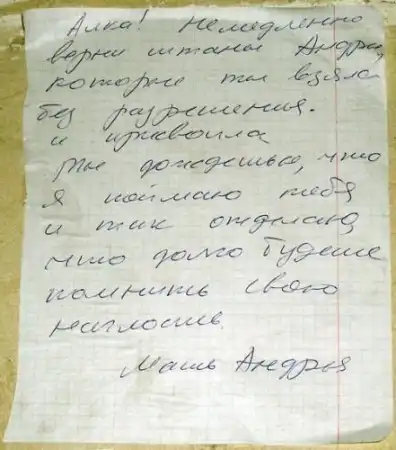 Алка! Немедленно
верни штаны Андрея,
которые ты взяла
без разрешения.
и присвоила
Ты дождешься, что
я поймаю тебя
и так отделаю,
что долго будешь
помнить свою
наглость.
Мать Андрея